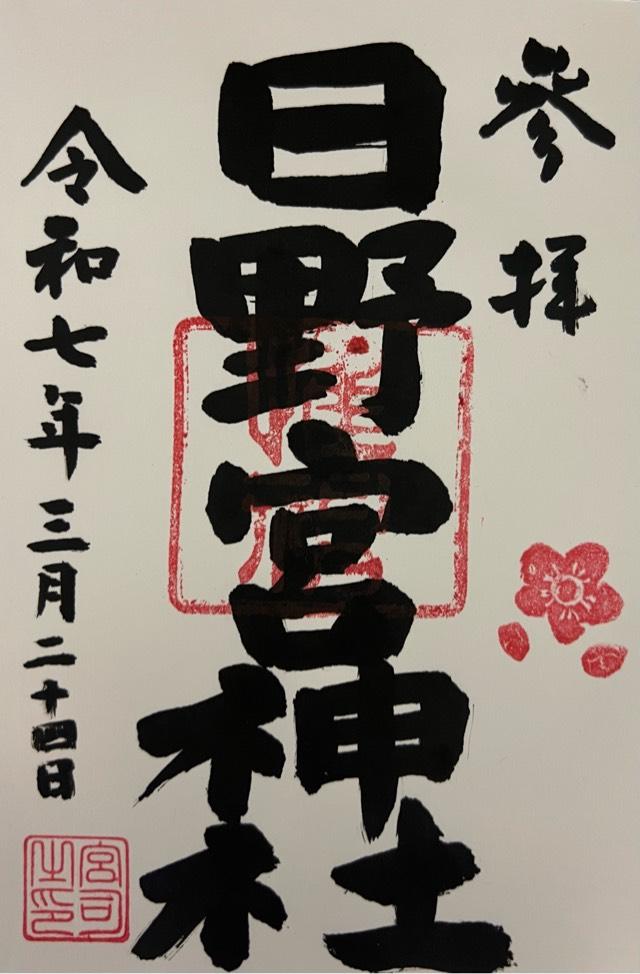 参拝
日野宮神社
令和七年三月二十四日
宮司之印